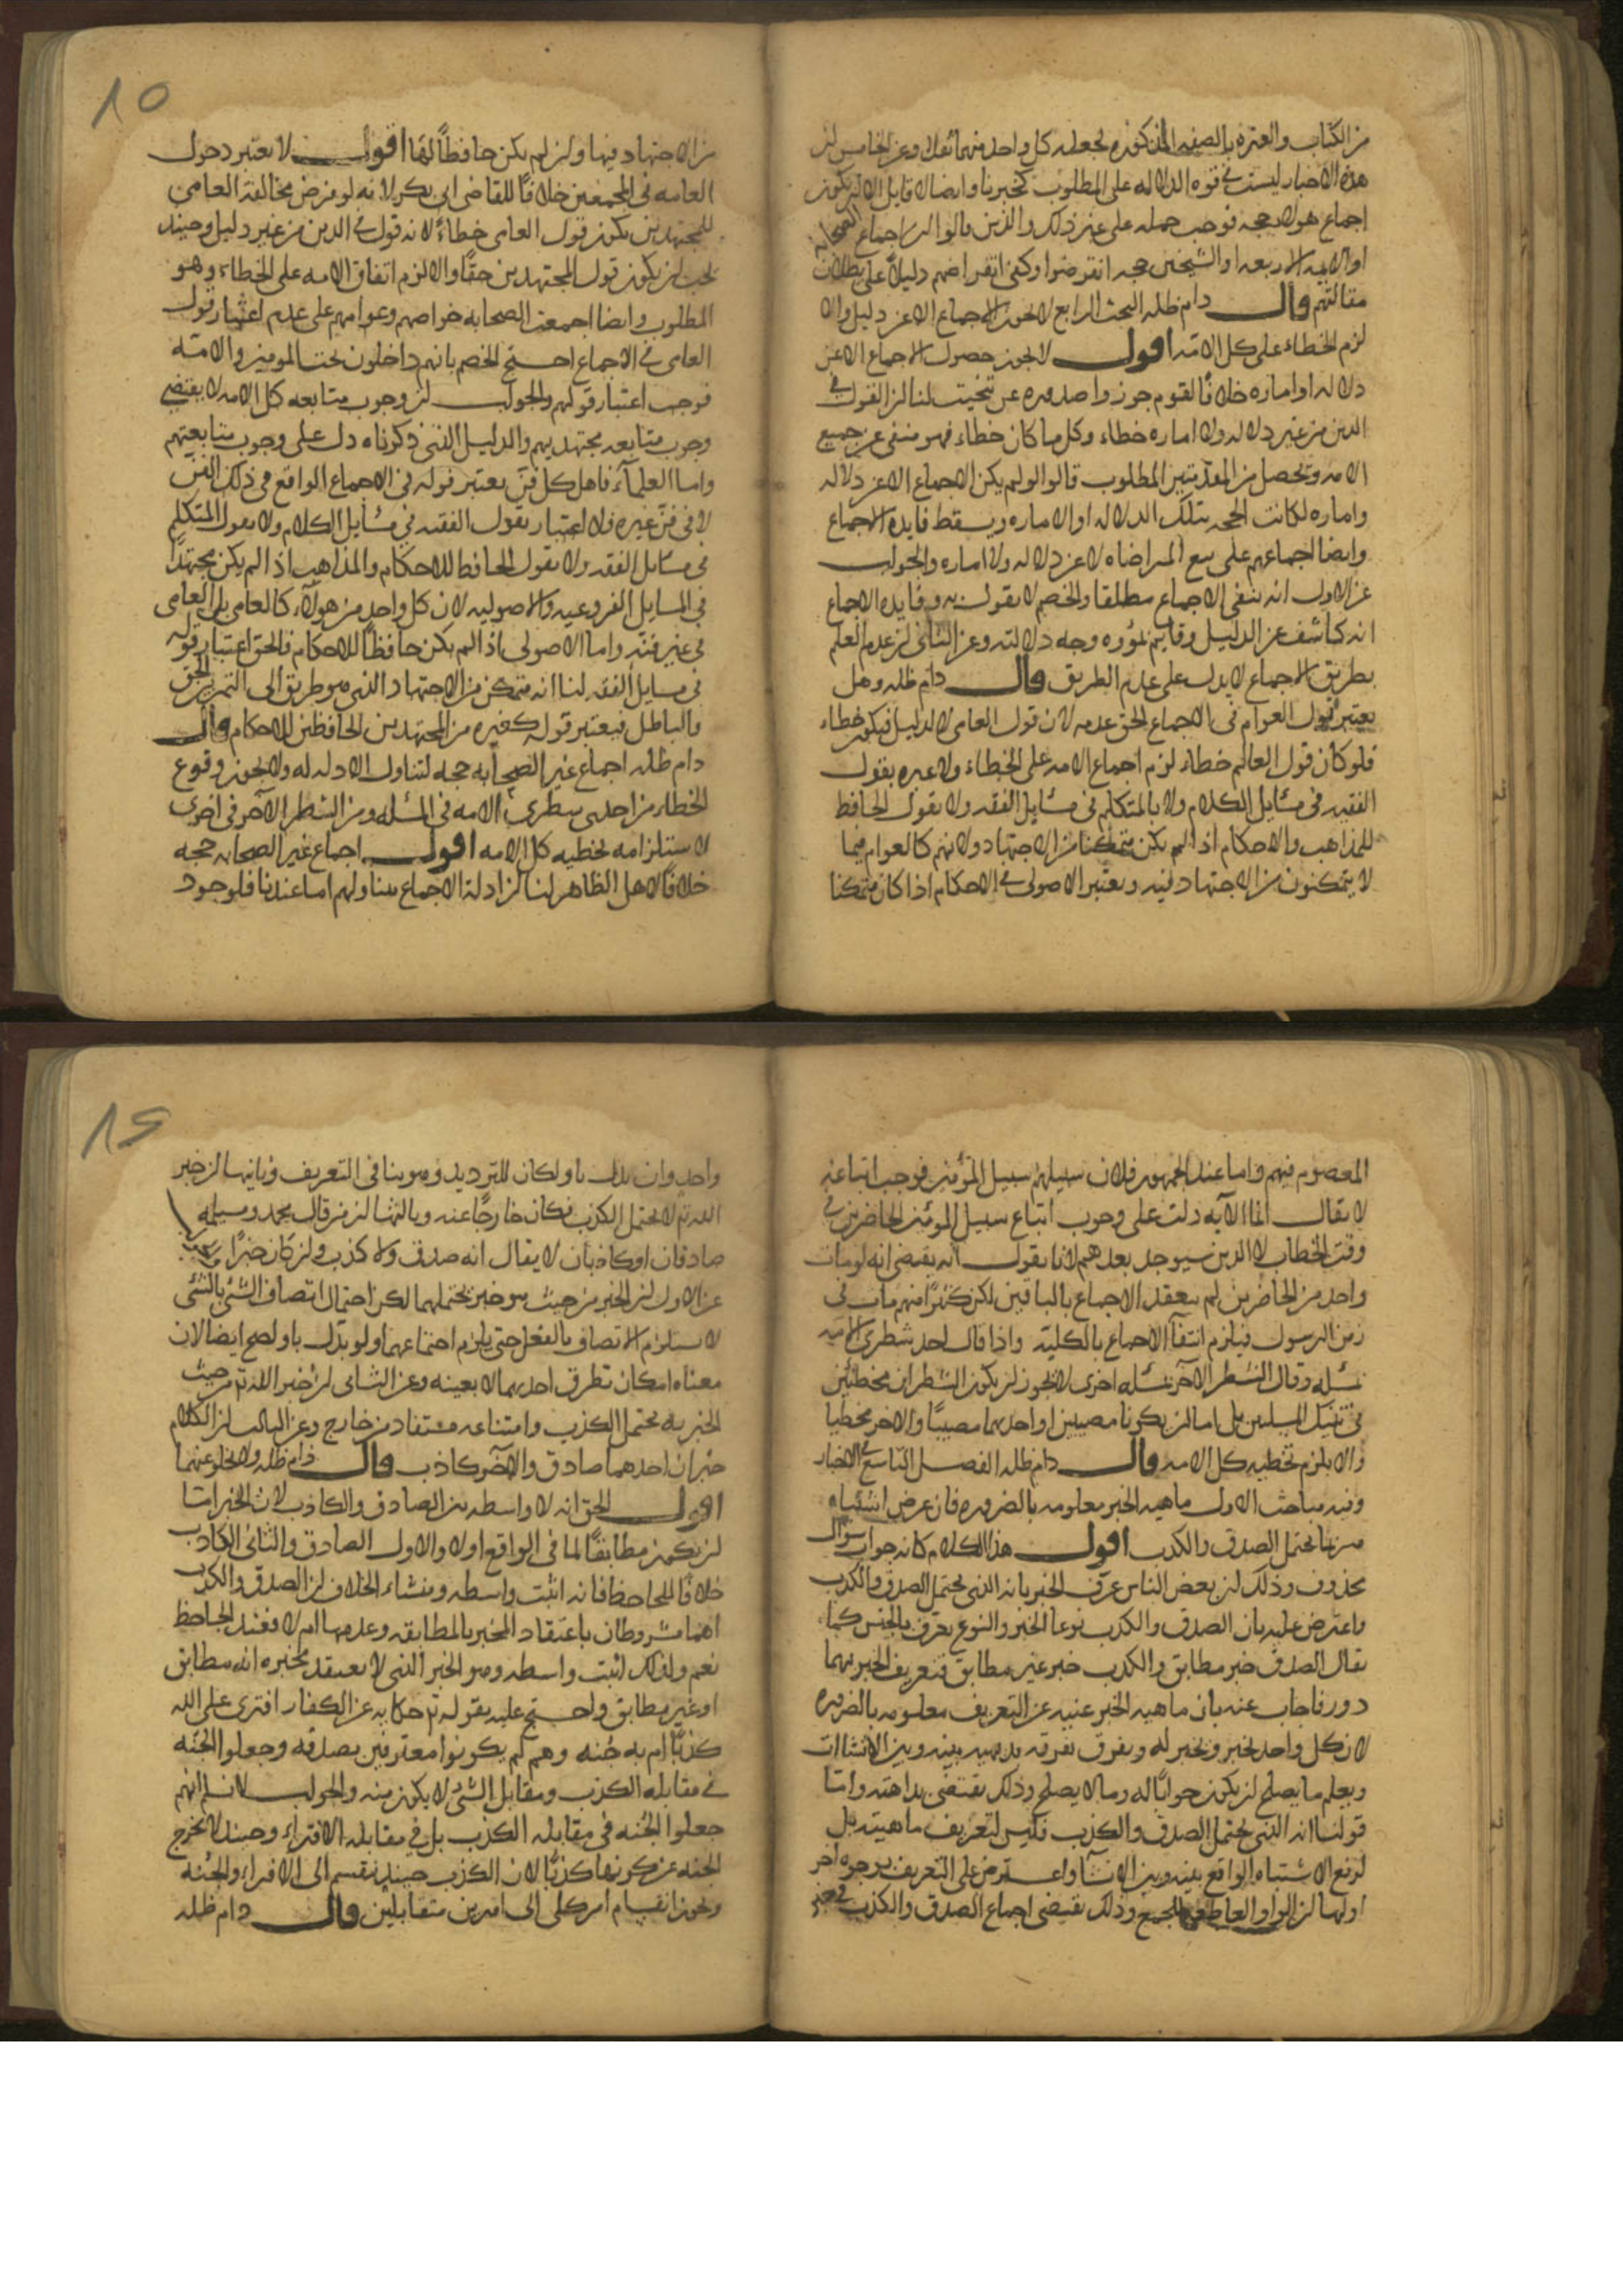 من الكتاب والعتره بالصفه المذكوره لجعله كل واحد منهما ثقلا وعن الخامس ان
هذه الاخبار ليست في قوه الدلاله على المطلوب كخبرنا وايضا لا قايل الا لم يكون
اجماع هولاء حجه فوجب حمله على غير ذلك والذين قالوا ان اجماع الصحابه
او الايمه الاربعه او الشيخين حجه انقرضوا وكفى انقراضهم دليلا على بطلان
مقالتهم قال دام ظله البحث الرابع لا يجوز الاجماع الا عن دليل والا
لزم الخطاء على كل الامه اقول لا يجوز حصول الاجماع الا عن
دلاله او اماره خلافا لقوم جوزوا صدوره عن تبخيت لنا ان القول في
الدين من غير دلاله ولا اماره خطاء وكل ما كان خطاء فهو منفى عن جميع
الامه ويحصل من المقدمتين المطلوب قالوا لو لم يكن الاجماع الا عن دلاله
واماره لكانت الحجه بتلك الدلاله او الاماره ويسقط فايده الاجماع
وايضا اجماعهم على بيع المراضاه لا عن دلاله ولا اماره والجواب
عن الاول انه ينفى الاجماع مطلقا والخصم لا يقول به وفايده الاجماع
انه كاشف عن الدليل وجه دلالته وعن الثانى ان عدم العلم
بطريق الاجماع لا يدل على عدم الطريق قال دام ظله وهل
يعتبر قول العوام في الاجماع الحق عدمه لان قول العامى لا لدليل فيكون خطاء
فلو كان قول العالم خطاء لزم اجماع الامه على الخطاء ولا عبره بقول
الفقيه في مسايل الكلام ولا بالمتكلم في مسايل الفقه ولا بقول الحافظ
للمذاهب والاحكام اذا لم يكن متمكنا من الاجتهاد ولانهم كالعوام فيما
لا يتمكنون من الاجتهاد فيه ويعتبر الاصولى في الاحكام اذا كان متمكنا
10
من الاجتهاد فيها وان لم يكن حافظا لها اقول لا يعتبر دخول
العامه في المجمعين خلافا للقاضى ابى بكر لانه لو فرض مخالفة العامى
للمجتهدين يكون قول العامى خطاء لانه قول في الدين من غير دليل وحينئذ
يجب ان يكون قول المجتهدين حقا والا لزم اتفاق الامه على الخطاء وهو
المطلوب وايضا اجمعت الصحابه خواصهم وعوامهم على عدم اعتبار قول
العامى في الاجماع احتج الخصم بانهم داخلون تحت المومنين والامه
فوجب اعتبار قولهم والجواب ان وجوب متابعه كل الامه لا يقتضى
وجوب متابعه مجتهديهم والدليل الذى ذكرناه دل على وجوب متابعتهم
واما العلماء فاهل كل فن يعتبر قوله في الاجماع الواقع في ذلك الفن
لا في فن غيره فلا اعتبار بقول الفقيه في مسايل الكلام ولا بقول المتكلم
في مسايل الفقه ولا بقول الحافظ للاحكام والمذاهب اذا لم يكن مجتهدا
في المسايل الفروعيه والاصوليه لان كل واحد من هولاء كالعامى بل العامى
في غير فنه واما الاصولى اذا لم يكن حافظا للاحكام فالحق اعتبار قوله
في مسايل الفقه لنا انه متمكن من الاجتهاد الذى هو طريق الى التمييز بين الحق
والباطل فيعتبر قوله كغيره من المجتهدين الحافظين للاحكام قال
دام ظله اجماع غير الصحابه حجه لتناول الادله له ولا يجوز وقوع
الخطاء من احدى شطرى الامه في المسئله ومن الشطر الآخر في اخرى
لاستلزامه تخطيه كل الامه اقول اجماع غير الصحابه حجه
خلافا لاهل الظاهر لنا ان ادلة الاجماع يتناولهم اما عندنا فلوجود
المعصوم فيهم واما عند الجمهور فلان سبيلهم سبيل المؤمنين فوجب اتباعه
لا يقال الآيه دلت على وجوب اتباع سبيل المؤمنين الحاضرين في
وقت الخطاب لا الذين سيوجد بعدهم لانا نقول انه يقتضى انه لو مات
واحد من الحاضرين لم ينعقد الاجماع بالباقين لكن كثيرا منهم مات في
زمن الرسول فيلزم انتفاء الاجماع بالكليه واذا قال احد شطرى الامه
مسئله وقال الشطر الآخر مسئله اخرى لا يجوز ان يكون الشطران مخطئين
في تينك المسئلتين بل اما ان يكونا مصيبين او احدهما مصيبا والاخر مخطيا
والا يلزم تخطيه كل الامه قال دام ظله الفصل التاسع في الاخبار
وفيه مباحث الاول ماهيه الخبر معلومه بالضروره فان عرض اشتباه
ميزها بما يحتمل الصدق والكذب اقول هذا الكلام كانه جواب سوال
محذوف وذلك ان بعض الناس عرف الخبر بانه الذى يحتمل الصدق والكذب
واعترض عليه بان الصدق والكذب نوعا الخبر والنوع يعرف بالجنس كما
يقال الصدق خبر مطابق والكذب خبر غير مطابق فتعريف الخبر بهما
دور فاجاب عنه بان ماهيه الخبر غنيه عن التعريف معلومه بالضروره
لان كل واحد يخبر ويخبر له ويفرق تفرقه بديهيه بينه وبين الانشاات
ويعلم ما يصلح ان يكون جوابا له وما لا يصلح وذلك يقتضى بداهته واما
قولنا انه الذى يحتمل الصدق والكذب فليس لتعريف ماهيته بل
لرفع الاشتباه الواقع بينه وبين الانشا واعترض على التعريف بوجوه اخر
اولها ان الواو العاطفه للجمع وذلك يقتضى اجماع الصدق والكذب في خبر
12
واحد وان بدلت باو لكان للترديد وهو ينافى التعريف وثانيها ان خبر
الله تع لا يحتمل الكذب فكان خارجا عنه وثالثها ان من قال محمد ومسيلمه
صادقان او كاذبان لا يقال انه صدق ولا كذب وان كان خبرا
عن الاول ان الخبر من حيث هو خبر يحتملهما لكن احتمال اتصاف الشئ بالشئ
لا يستلزم الاتصاف بالفعل حتى يلزم اجتماعهما ولو بدل باو لصح ايضا لان
معناه امكان تطرق احدهما لا بعينه وعن الثانى ان خبر الله تع من حيث
الخبريه يحتمل الكذب وامتناعه مستفاد من خارج وعن الثالث ان الكلام
خبران احدهما صادق والآخر كاذب قال دام ظله ولا يخلو عنهما
اقول الحق انه لا واسطه بين الصادق والكاذب لان الخبر اما
ان يكون مطابقا لما في الواقع اولا والاول الصادق والثانى الكاذب
خلافا للجاحظ فانه اثبت واسطه ومنشاء الخلاف ان الصدق والكذب
اهما مشروطان باعتقاد المخبر بالمطابقه وعدمها ام لا فعند الجاحظ
نعم ولذلك اثبت واسطه وهو الخبر الذى لا يعتقد مخبره انه مطابق
او غير مطابق واحتج عليه بقوله تع حكايه عن الكفار افترى على الله
كذبا ام به جنه وهم لم يكونوا معترفين بصدقه وجعلوا الجنه
في مقابله الكذب ومقابل الشئ لا يكون منه والجواب لا نسلم انهم
جعلوا الجنه في مقابله الكذب بل في مقابله الافتراء وحينئذ لا يخرج
الجنه عن كونها كذبا لان الكذب حينئذ ينقسم الى الافتراء والجنه
ويجوز انقسام امر كلى الى امرين متقابلين قال دام ظله